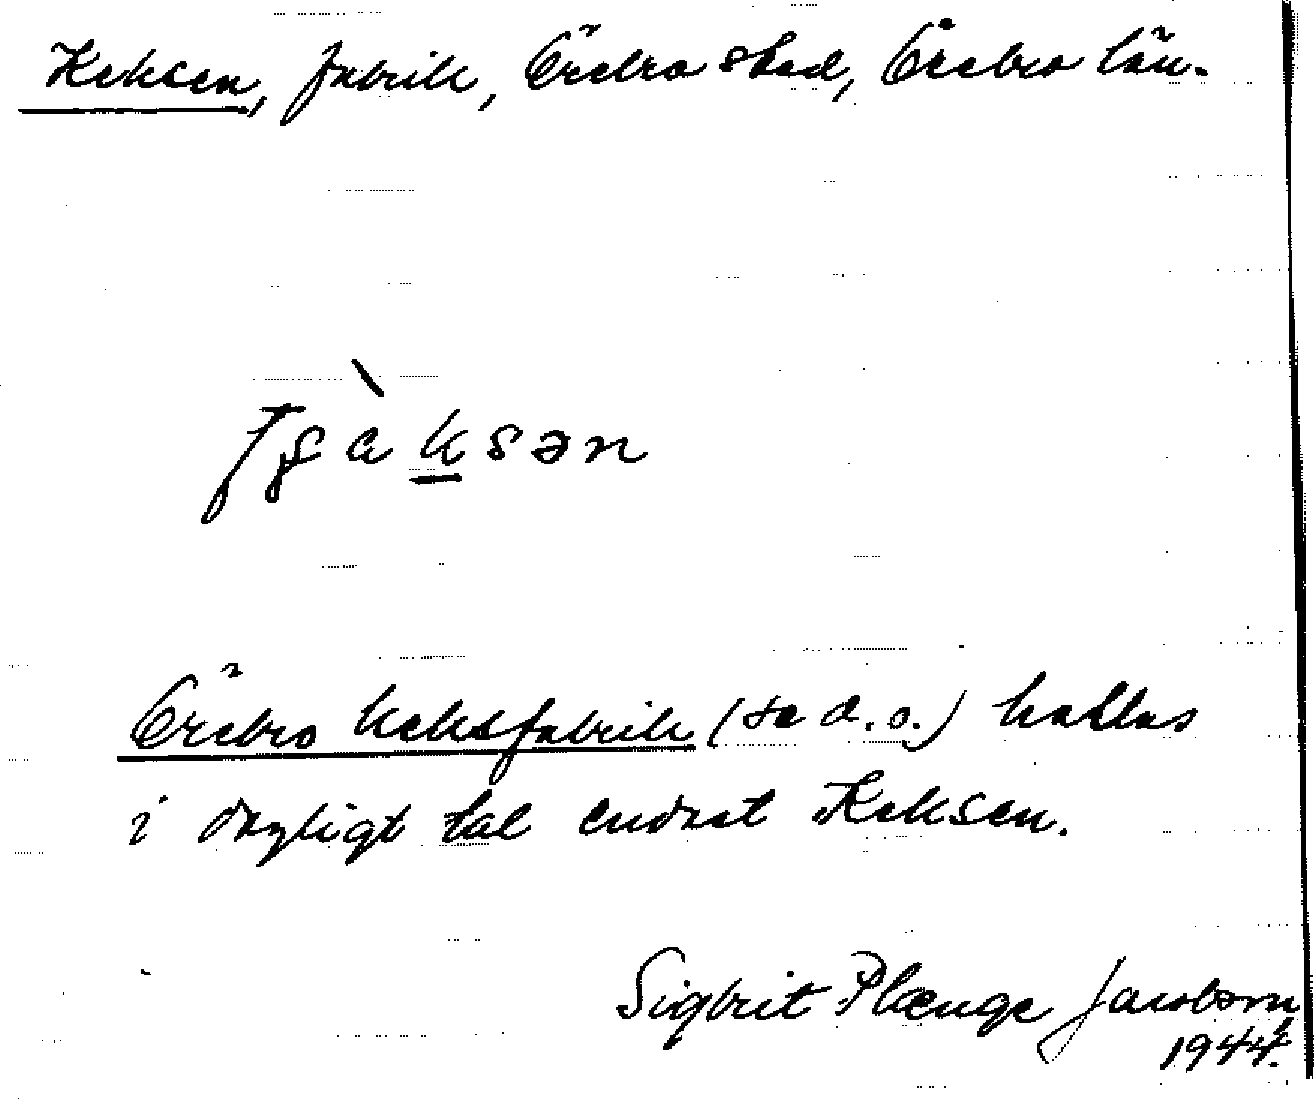 Keksen, fabrik, Örebro stad, Örebro län.
Örebro keksfabrik (se d. o.) kallas
i dagligt tal endast Keksen.
Sigbrit Plænge Jacobson
1944.